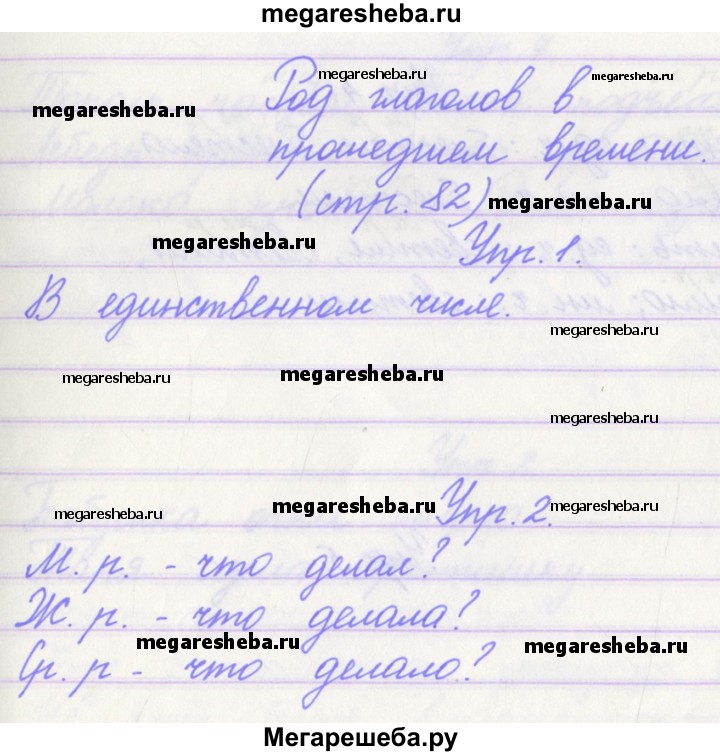 megaresheba.ru
Род глаголов в
megaresheba.ru
megaresheba.ru
megaresheba.ru
прошедшем времени.
(стр. 82)
megaresheba.ru
megaresheba.ru
Упр. 1.
В единственном числе.
megaresheba.ru
megaresheba.ru
megaresheba.ru
megaresheba.ru
megaresheba.ru
megaresheba.ru
Упр. 2.
megaresheba.ru
М. р. - что делал?
Ж. р. - что делала?
megaresheba.ru
megaresheba.ru
Ср. р - что делало?
Мегарешеба.ру